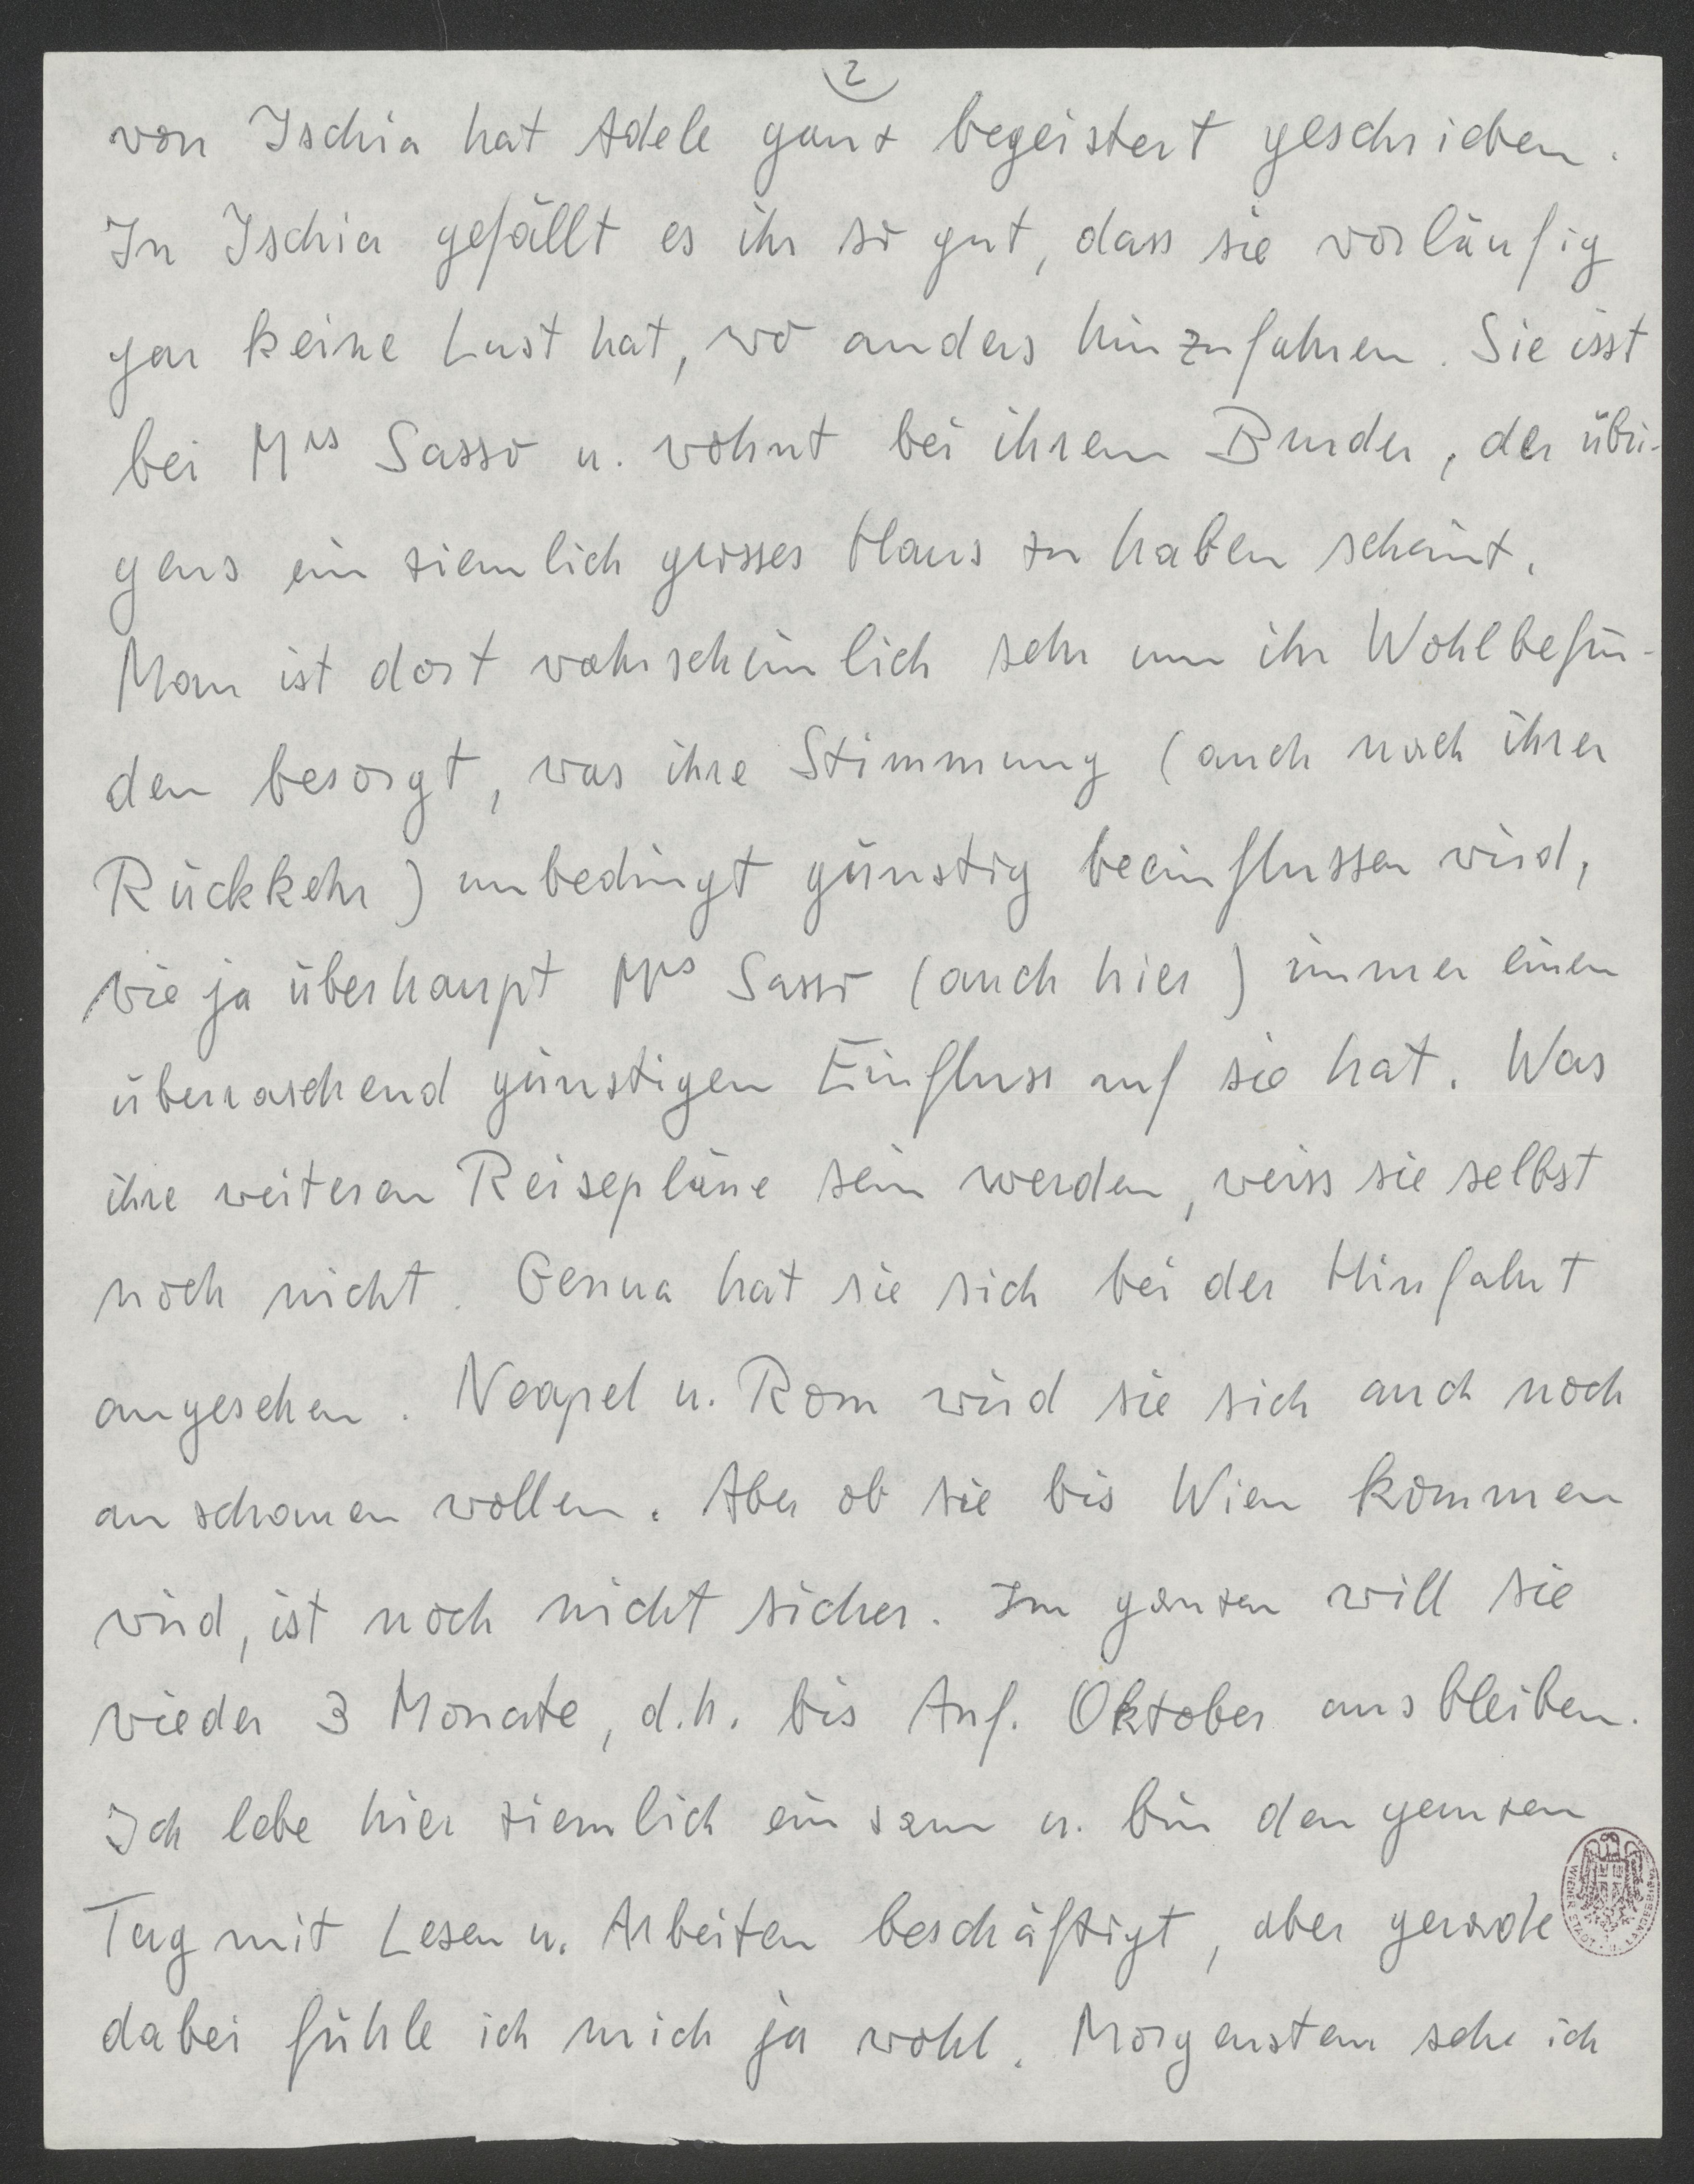 2
von Ischia hat Adele ganz begeistert geschrieben.
In Ischia gefällt es ihr so gut, dass sie vorläufig
gar keine Lust hat, wo anders hinzufahren. Sie isst
bei Mrs Sasso u. wohnt bei ihrem Bruder, der übri-
gens ein ziemlich grosses Haus zu haben scheint.
Man ist dort wahrscheinlich sehr um ihr Wohlbefin-
den besorgt, was ihre Stimmung (auch nach ihrer
Rückkehr) unbedingt günstig beeinflussen wird,
wie ja überhaupt Mrs Sasso (auch hier) immer einen
überraschend günstigen Einfluss auf sie hat. Was
ihre weiteren Reisepläne sein werden, weiss sie selbst
noch nicht. Genua hat sie sich bei der Hinfahrt
angesehen. Neapel u. Rom wird sie sich auch noch
anschauen wollen. Aber ob sie bis Wien kommen
wird, ist noch nicht sicher. Im ganzen will sie
wieder 3 Monate, d.h. bis Anf. Oktober ausbleiben.
Ich lebe hier ziemlich einsam u. bin den ganzen
Tag mit Lesen u. Arbeiten beschäftigt, aber gerade
dabei fühle ich mich ja wohl. Morgenstern sehe ich